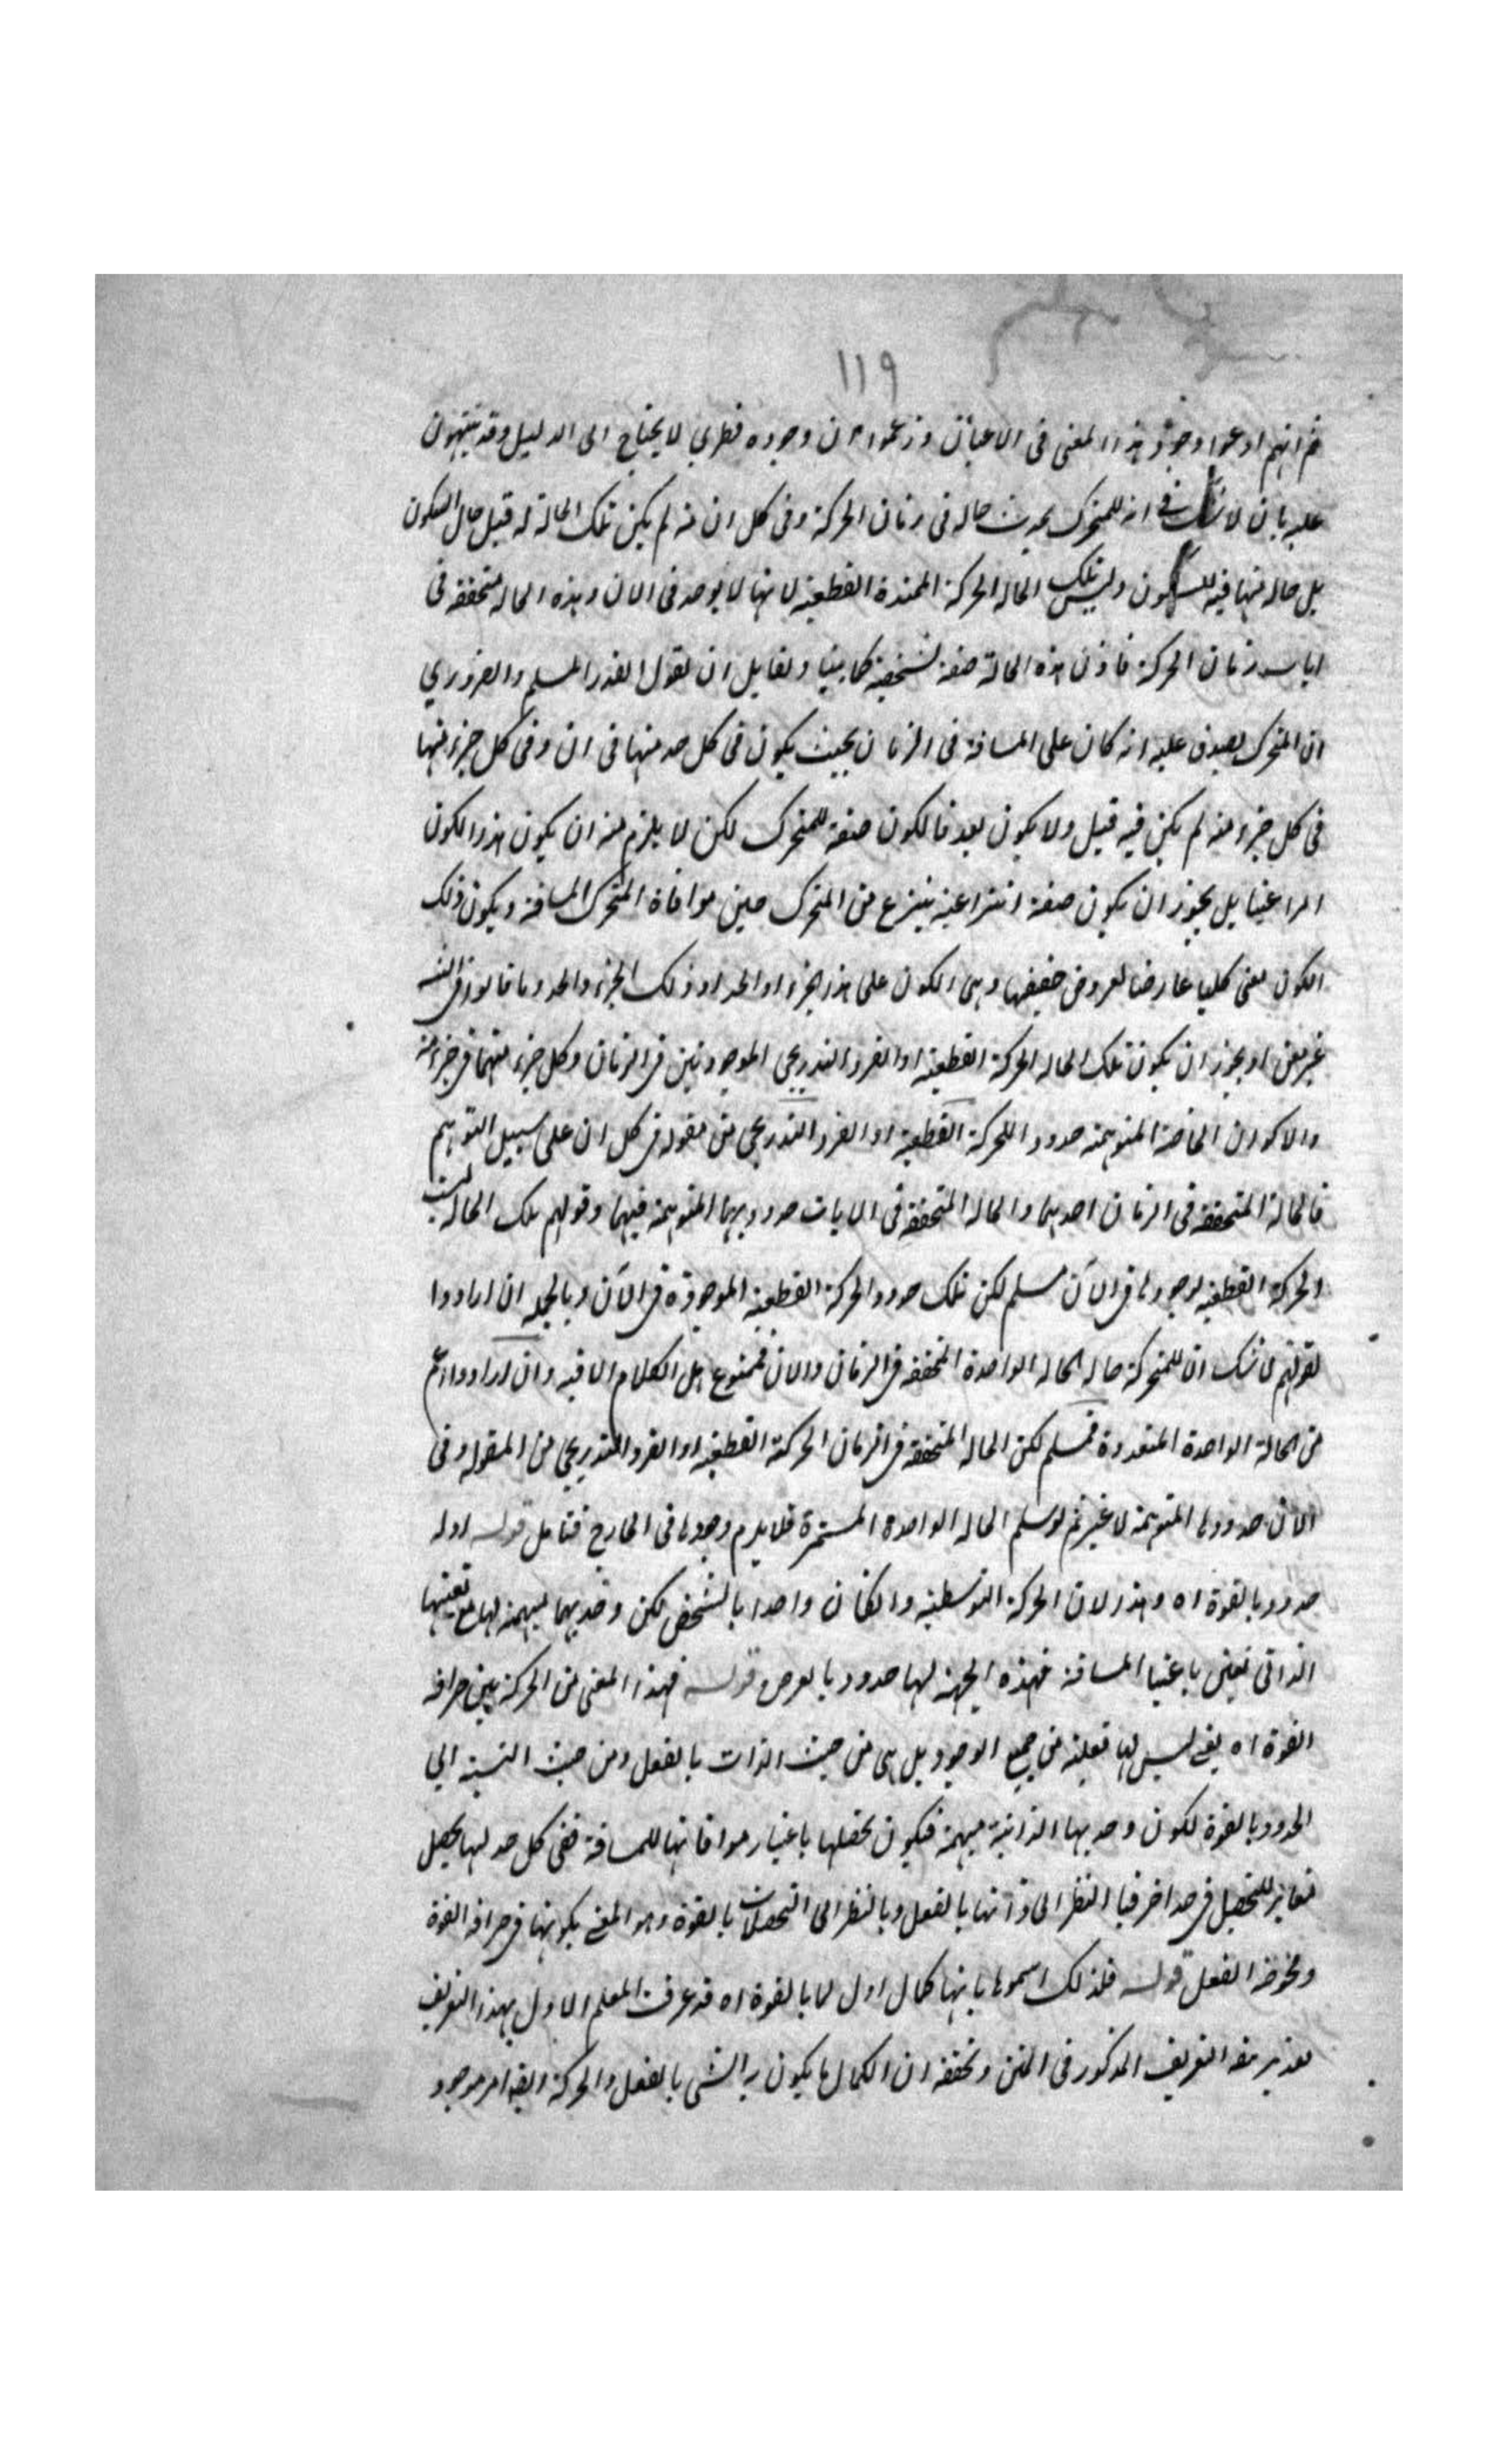 ١١٩
ثم انهم ادعوا وجود هذا المعنى فى الاعيان وزعموا ان وجوده فطري لا يحتاج الى الدليل وقد ينبهون
عليه بان لا شك فى انه للمتحرك يحدث حاله فى زمان الحركة وفى كل ان منه لم يكن تلك الحالة له قبل حال السكون
بل حاله منافيه للسكون وليس تلك الحاله الحركة الممتدة القطعيه لانها لا يوجد فى الان وهذه الحاله متحققه فى
زمان الحركة فاذن هذه الحالة صفة شخصية كما بينا ولقايل ان يقول القدر المسلم والضروري
ان المتحرك يصدق عليه انه كان على المسافة فى الزمان بحيث يكون فى كل حد منها فى ان وفى كل جزء منها
فى كل جزء منه لم يكن فيه قبل ولا يكون بعد فالكون صفة للمتحرك لكن لا يلزم منه ان يكون هذا الكون
امرا عينيا بل يجوز ان يكون صفة انتزاعية ينتزع من المتحرك حين موافاة المتحرك المسافة ويكون ذلك
الكون معنى كليا عارضا لعروض حصصها وهى الكون على هذا الجزء او الحد او ذلك الجزء والحد وما قالوا فى
او يجوز ان يكون تلك الحاله الحركة القطعية او الفرد التدريجى الموجودين فى الزمان وكل جزء منهما فى جزء منه
والاكوان الخاصة المتوهمة حدود للحركة القطعية او الفرد التدريجى من مقوله فى كل ان على سبيل التوهم
فالحالة المتحققه فى الزمان احدهما والحاله المتحققة فى الانات حدودهما المتوهمة فيهما وقولهم تلك الحاله ليست
الحركة القطعيه لوجودها فى الآن مسلم لكن تلك حدود الحركة القطعية الموجودة فى الآن وبالجمله ان ارادوا
بقولهم لا شك ان للمتحركة حاله الحاله الواحدة المتحققه فى الزمان والان فممنوع بل الكلام الا فيه وان ارادوا اعم
من الحالة الواحدة المتعددة فمسلم لكن الحاله المتحققه فى الزمان الحركة القطعيه او الفرد التدريجى من المقوله وفى
الان حدودها المتوهمة لا غير ثم لو سلم الحاله الواحدة المستمرة فلا يلزم وجودها فى الخارج فتامل قوله اوله
حدود بالقوة اه وهذا لان الحركة التوسطيه وان كان واحدا بالشخص لكن وحدتهما مبهمة لها مع تعينها
الذاتى تعين باعتبار المسافة فهذه الجهة لها حدود بالعرض قوله فهذا المعنى من الحركة بين صرافة
القوة اه يعنى ليس لها فعلية من جميع الوجوه بل هى من حيث الذات بالفعل ومن حيث النسبة الى
الحدود بالقوة لكون وحدتها الذاتية مبهمة فيكون تحصلها باعتبار موافاتها للمسافة ففى كل حد لها يحصل
مغاير للتحصل فى حد اخر فبالنظر الى ذاتها بالفعل وبالنظر الى التحصلات بالقوة وهو المعنى بكونها فى صرافة القوة
ومحوضة الفعل قوله فلذلك رسموها بانها كمال اول لما بالقوة اه قد عرف المعلم الاول بهذا التعريف
التعريف المذكور فى المتن وتحققه ان الكمال ما يكون به الشى بالفعل والحركة ايضا امر موجود